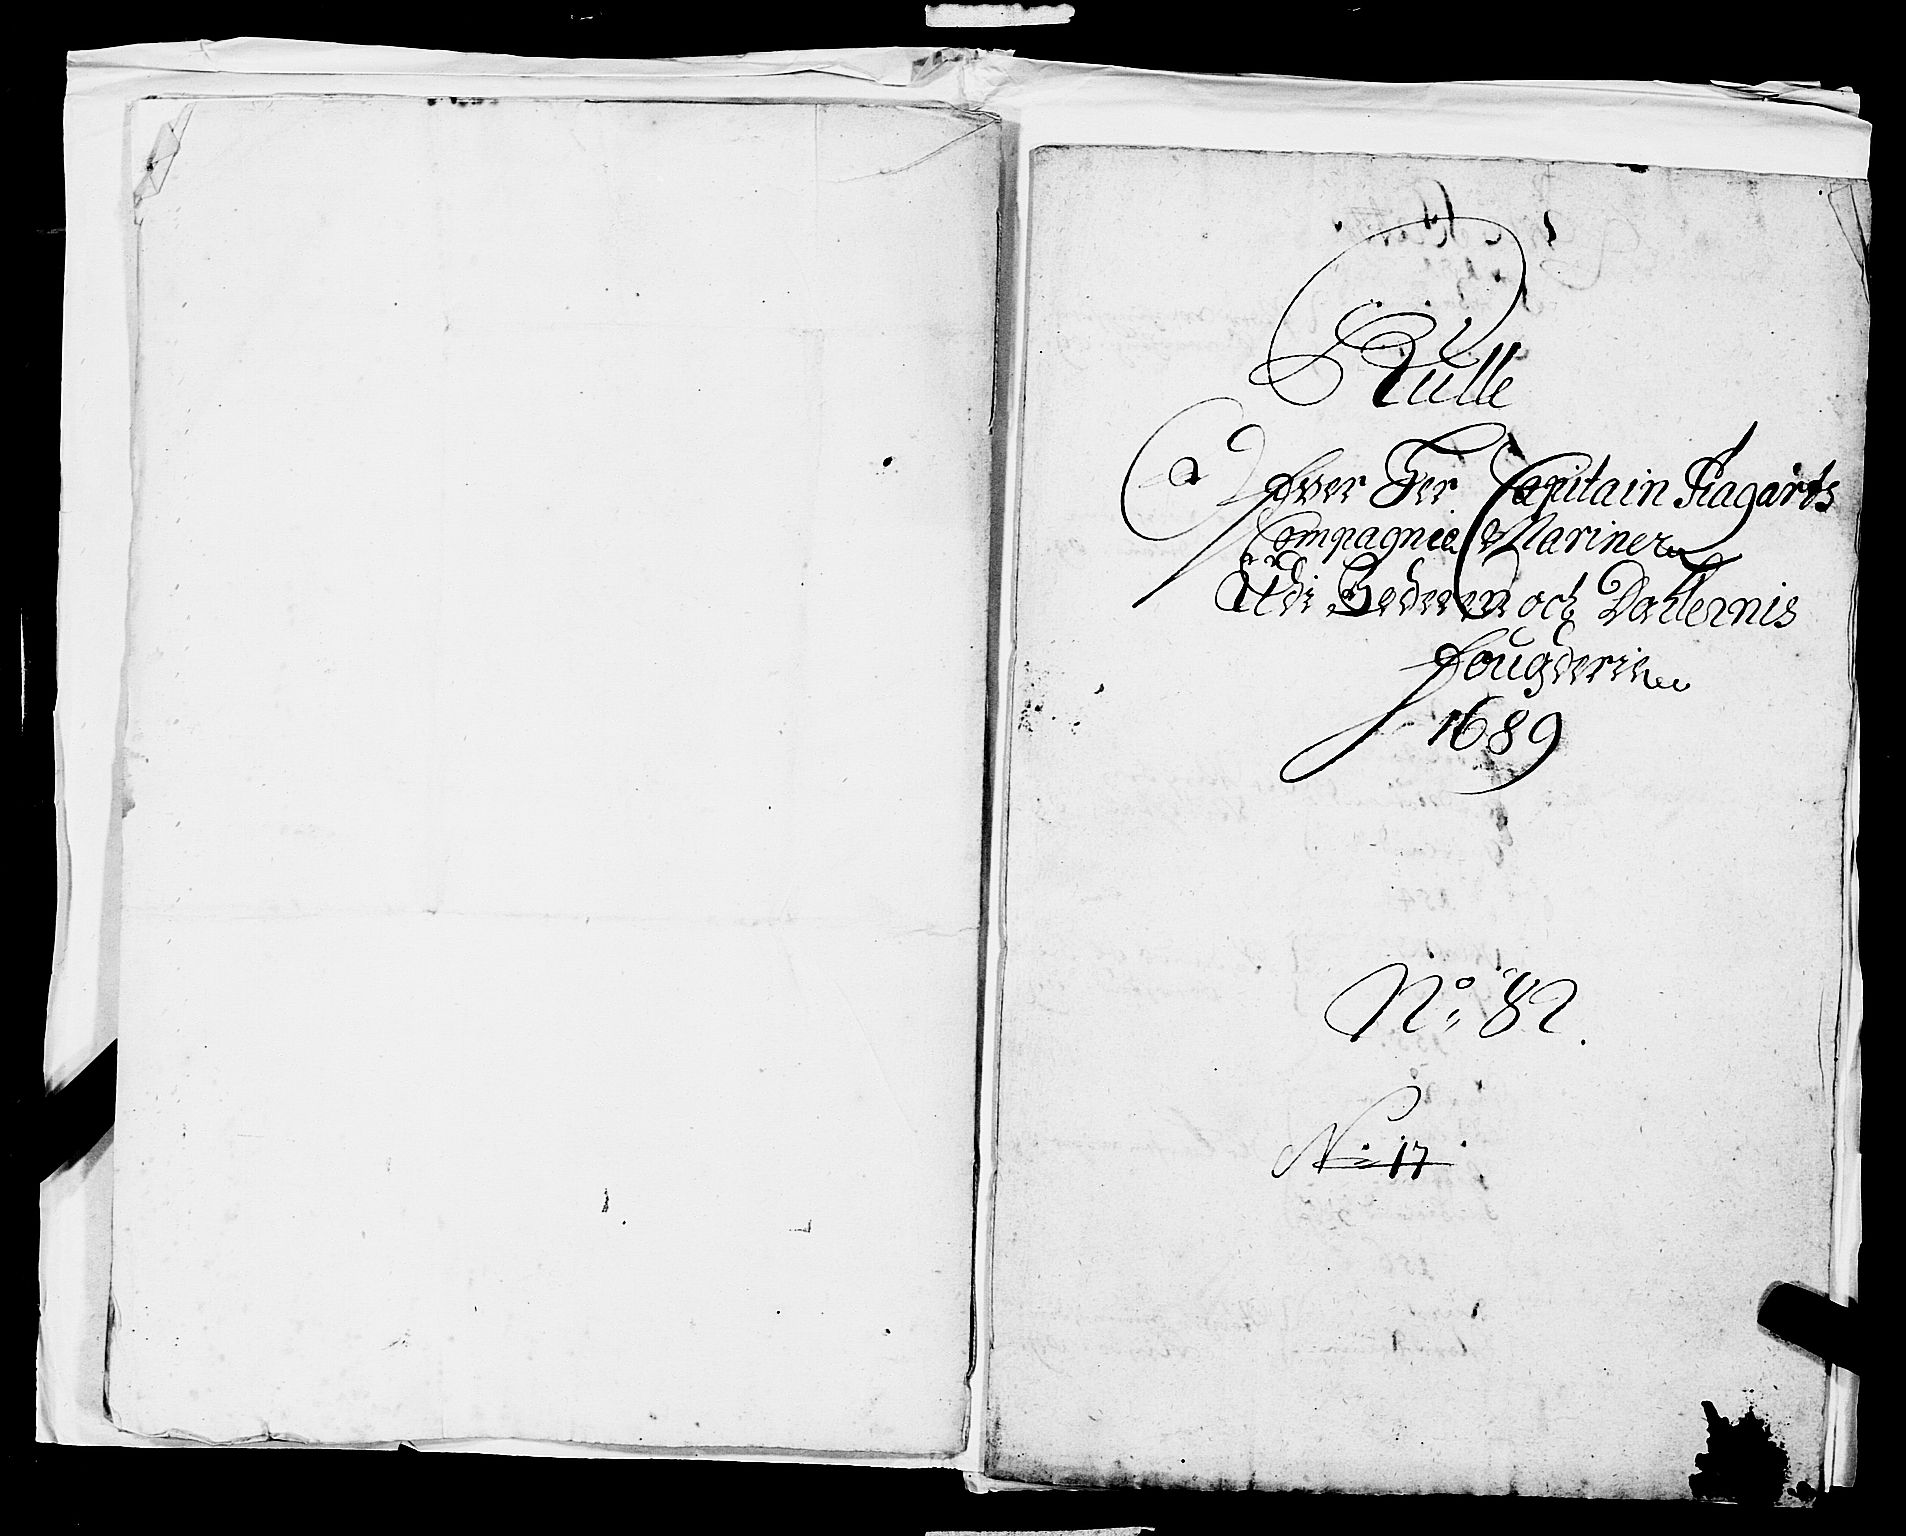 Rulle
Öfver Her Capitain Ragarts
Compagnie Mariner
Udi Nedenes och Dallernis
fougderie
1689
No: 82.
No: 17